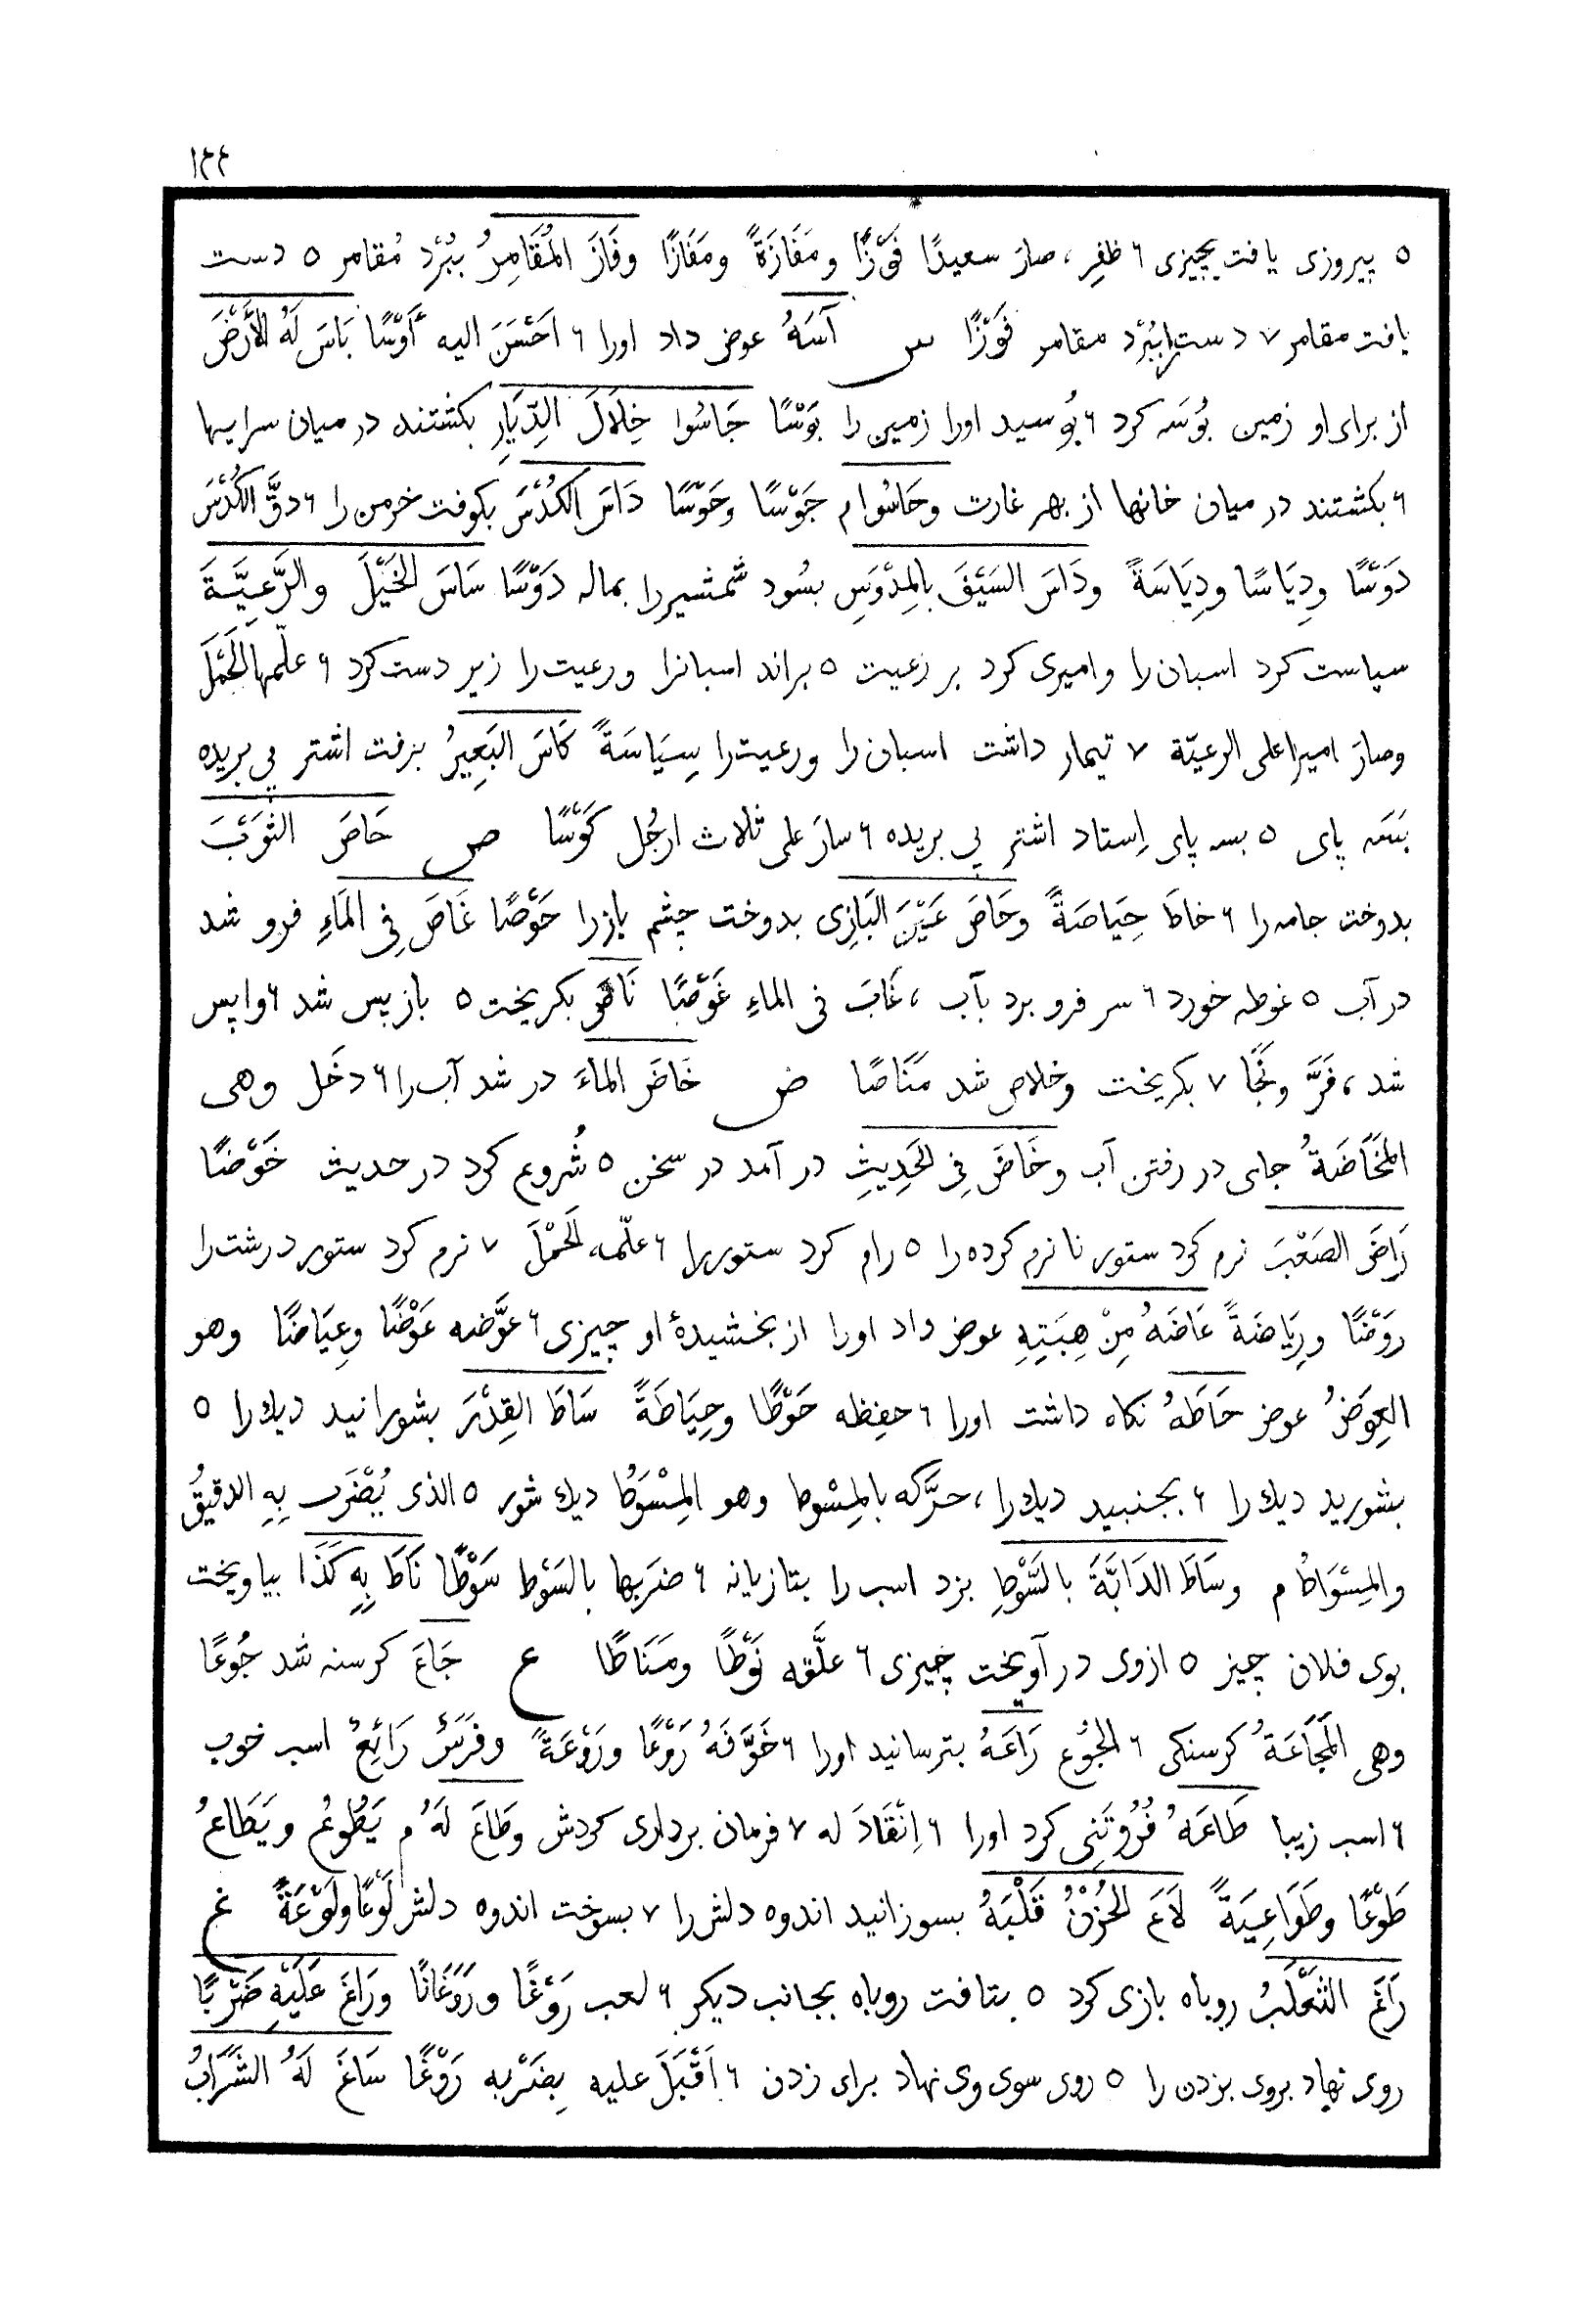 ١٤٤
٥ پیروزی یافت بچیزی ٦ ظفِر، صارَ سعیدًا فَوْزًا ومَفَازَةً ومَفَازًا وفَازَ المُقَامِرُ ببُرْد مُقامر ٥ دست
یافت مقامر ٧ دست را ببُرْد مقامر فَوْزًا س آسَهُ عوض داد اورا ٦ اَحْسَنَ الیه أَوْسًا بَاسَ لَهُ الأَرْضَ
از برای او زمین بُوسَه کرد ٦ بُوسید اورا زمین را بَوْسًا جَاسُوا خِلَالَ الدِّیَارِ بکشتند در میان سرایها
٦ بکشتند در میان خانها از بهر غارت وحَاسُوا م جَوْسًا وحَوْسًا دَاسَ الکُدْسَ بکوفت خرمن را ٦ دقَّ الکُدْسَ
دَوْسًا ودِیَاسًا ودِیَاسَةً ودَاسَ السَیْفَ بالمِدْوَسِ بسُود شمشیر را بماله دَوْسًا سَاسَ الخَیْلَ والرَّعِیَّةَ
سیاست کرد اسبان را وامیری کرد بر رعیت ٥ براند اسبانرا ورعیت را زیر دست کرد ٦ علّمها الحَمْلَ
وصارَ امیرا علی الرعیّة ٧ تیمار داشت اسبان را ورعیت را سِیَاسَةً کَاسَ البَعِیرُ برفت اشتر پی بریده
بسَه پای ٥ بسه پای اِستاد اشتر پی بریده ٦ سارَ علی ثلاث ارجُل کَوْسًا ص حَاصَ الثَوْبَ
بدوخت جامه را ٦ خاطَ حِیَاصَةً وحَاصَ عَیْنَ البَازِی بدوخت چشم باز را حَوْصًا غَاصَ فِی المَاءِ فرو شد
در آب ٥ غوطه خورد ٦ سر فرو برد بآب، غَابَ فی الماءِ غَوْصًا نَاصَ بکریخت ٥ بازپس شد ٦ واپس
شد، فَرَّ ونَجَا ٧ بکریخت وخلاص شد مَنَاصًا ض خَاضَ الماءَ در شد آب را ٦ دخَل وهی
المَخَاضَةُ جای در رفتن آب وخَاضَ فِی الحَدِیثِ در آمد در سخن ٥ شُروع کرد در حدیث خَوْضًا
رَاضَ الصَعْبَ نرم کرد ستور نا نرم کرده را ٥ رام کرد ستور را ٦ علّمه الحَمْلَ ٧ نرم کرد ستور درشت را
رَوْضًا ورِیَاضَةً عَاضَهُ مِنْ هِبَتِهِ عوض داد اورا از بخشیدهٔ او چیزی ٦ عوَّضه عَوْضًا وعِیَاضًا وهو
العِوَضُ عوض حَاطَهُ نکاه داشت اورا ٦ حفِظه حَوْطًا وحِیَاطَةً سَاطَ القِدْرَ بشورانید دیك را ٥
بشورید دیك را ٦ بجنبید دیك را، حرَّکه بالمِسْوط وهو المِسْوَطُ دیك شور ٥ الذی یُضْرَب بِهِ الدقیقُ
والمِسْوَاطُ م وسَاطَ الدَابَّةَ بالسَّوْطِ بزد اسب را بتازیانه ٦ ضرَبها بالسَوْط سَوْطًا نَاطَ بِهِ کَذَا بیاویخت
بوی فلان چیز ٥ ازوی در آویخت چیزی ٦ علَّقه نَوْطًا ومَنَاطًا ع جَاعَ کرسنه شد جُوعًا
وهی المَجَاعَةُ کرسنکی ٦ الجُوع رَاعَهُ بترسانید اورا ٦ خَوَّفَهُ رَوْعًا ورَوْعَةً وفَرَسٌ رَائِعٌ اسب خوب
٦ اسب زیبا طَاعَهُ فُرُوتَنِی کرد اورا ٦ اِنْقَادَ له ٧ فرمان برداری کردش وطَاعَ لَهُ م یَطُوعُ ویَطَاعُ
طَوْعًا وطَوَاعِیَةً لَاعَ الحُزْنُ قَلْبَهُ بسوزانید اندوه دلش را ٧ بسوخت اندوه دلش لَوْعًا ولَوْعَةً غ
رَاغَ الثَعْلَبُ روباه بازی کرد ٥ بتافت روباه بجانب دیکر ٦ لعب رَوْغًا ورَوَغَانًا ورَاغَ عَلَیْهِ ضَرْبًا
روی نهاد بروی بزدن را ٥ روی سوی وی نهاد برای زدن ٦ اَقْبَلَ علیه بِضَرْبه رَوْغًا سَاغَ لَهُ الشَرَابُ